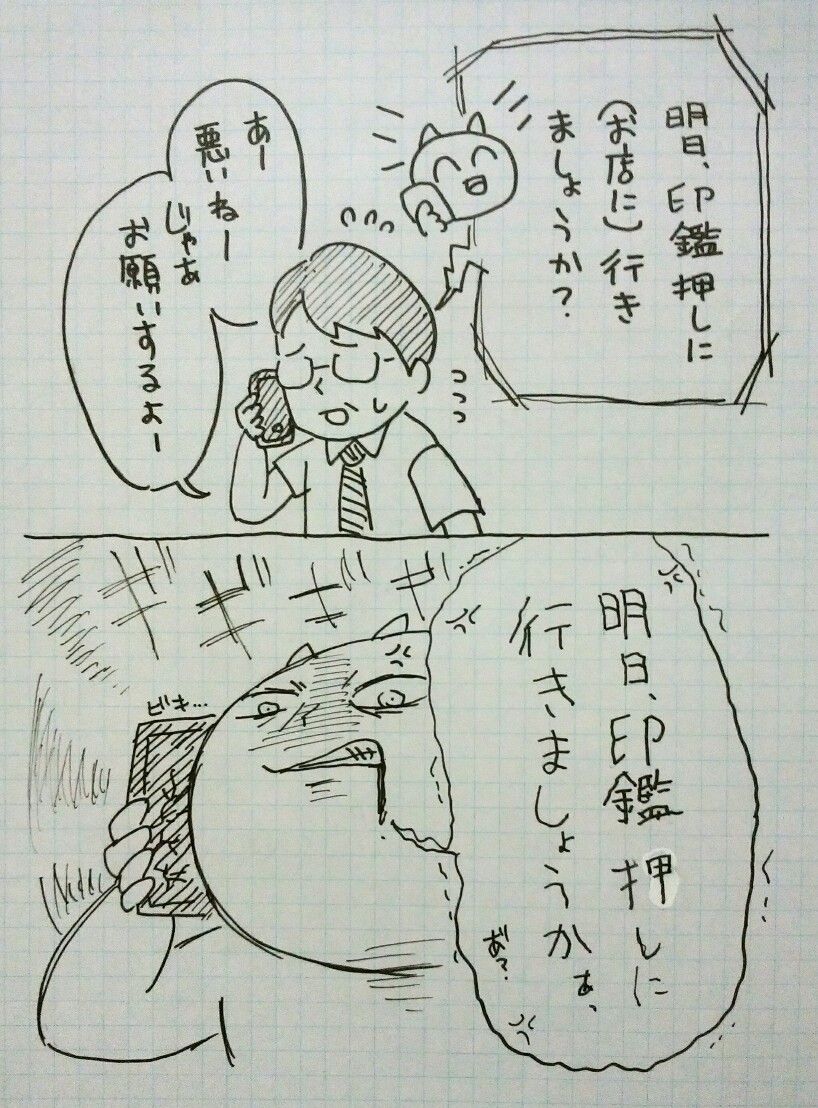 明日、印鑑押しに
(お店に)行き
ましょうか?
あー
悪いねー
じゃあ
お願いするよー
明日、印鑑押しに
行きましょうかぁ、
あ?
ギギギギ
ビキ…